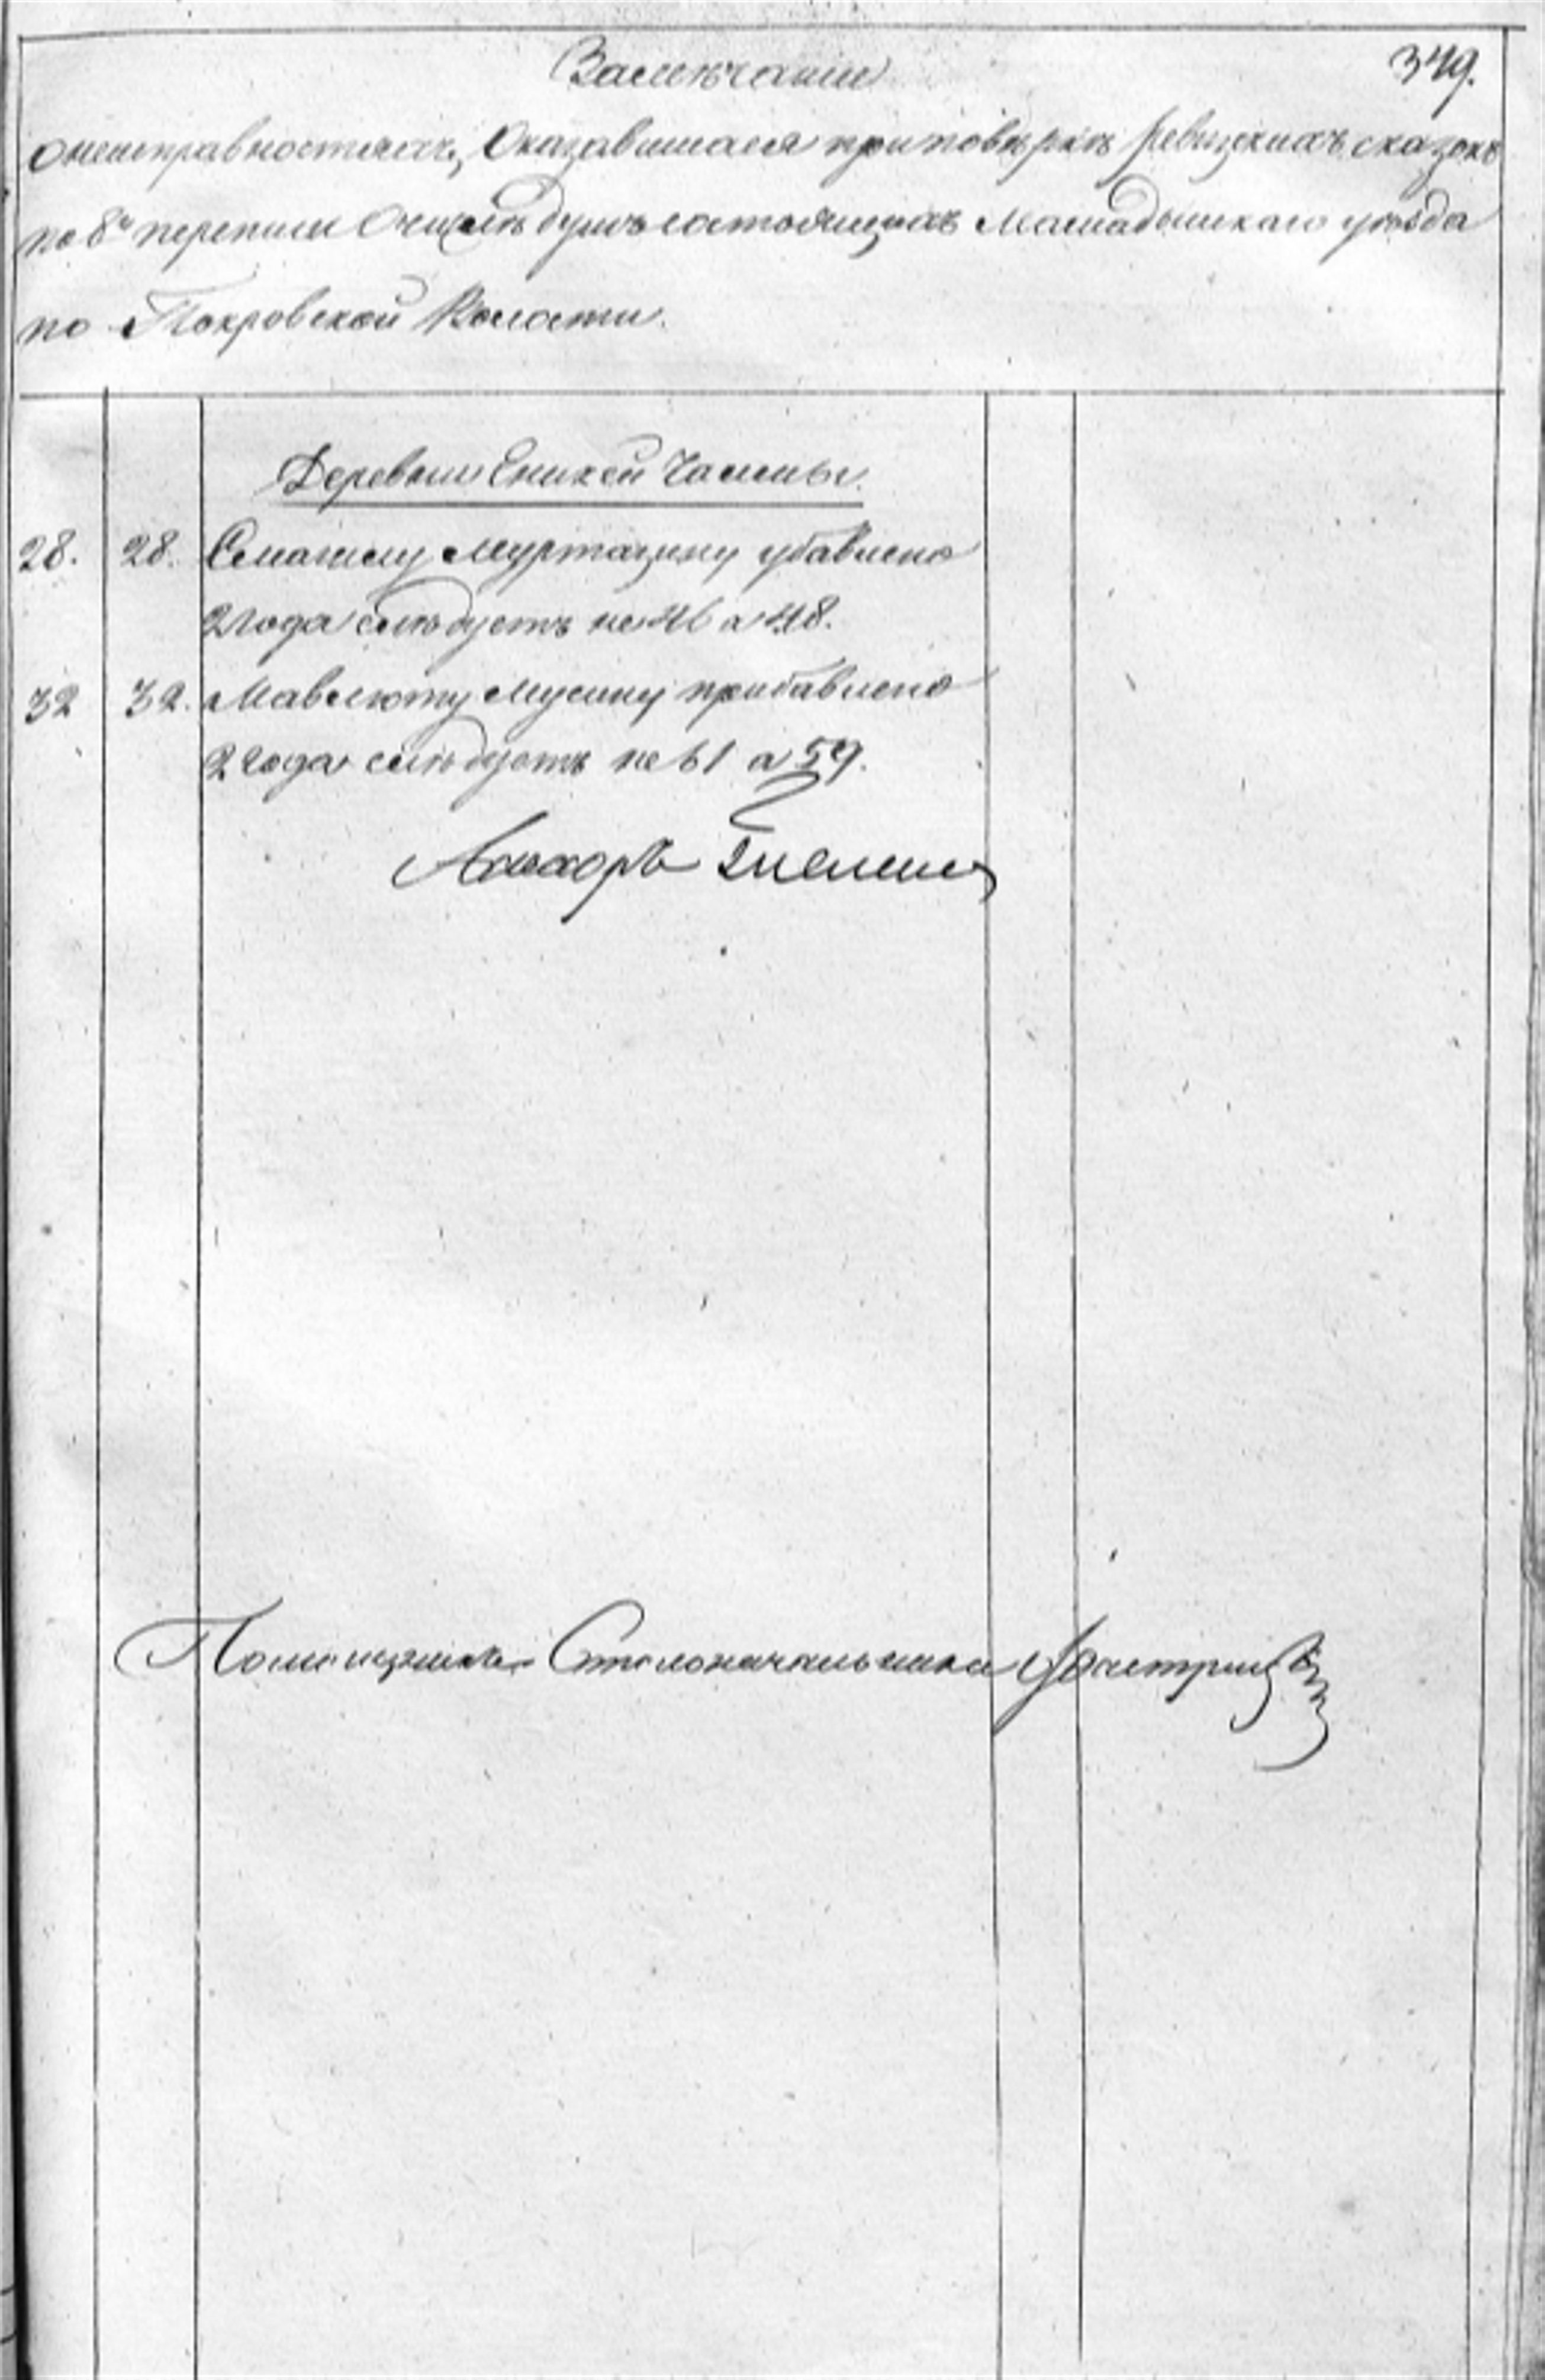 Замѣчаніи
349.
о неисправностяхъ, Оказавшихся при повѣркѣ ревизскихъ сказокъ
по 8й переписи О числѣ душъ состоящихъ Мамадышскаго уѣзда
по Покровской Волости.
Деревни Еникей Чаллы.
28. 28. Смагилу Муртазину убавлено
2 года слѣдуетъ не 46 а 48.
32 32. Мавлюту Мусину прибавлено
2 года слѣдуетъ не 61 а 59.
Помощникъ Столоначальника